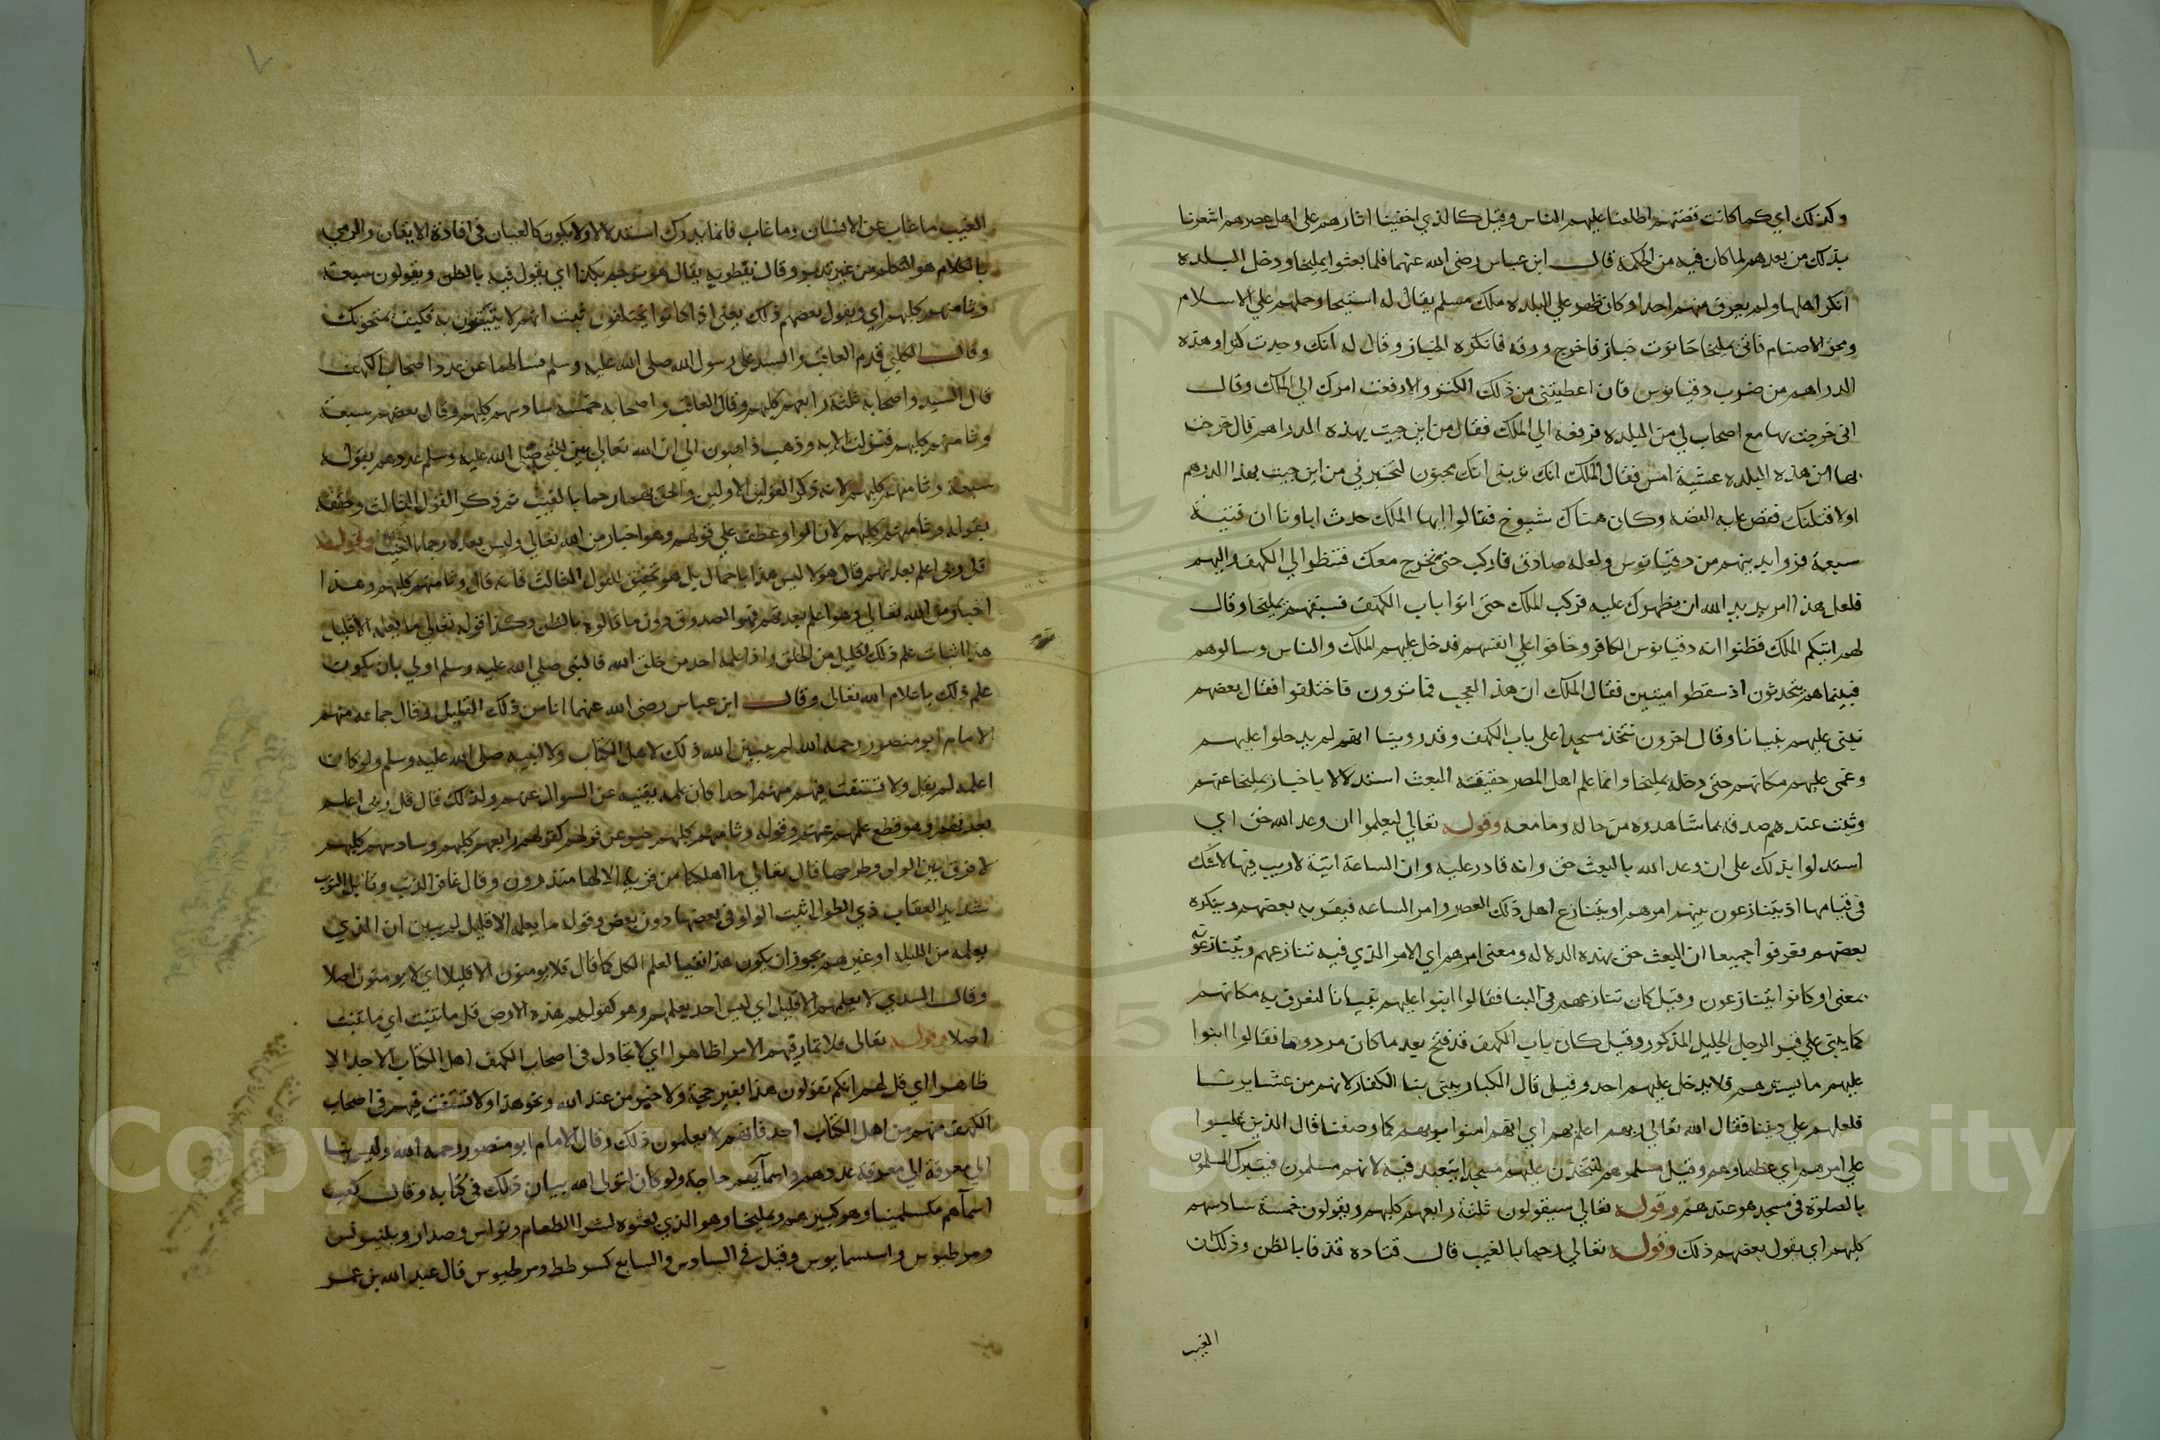 وكذلك اي كما كانت قصتهم اطلعنا عليهم الناس وقيل كالذي اخفينا اثارهم على اهل عصرهم اشعرنا
بذلك من بعدهم لما كان فيه من الحكمة قال ابن عباس رضى الله عنهما فلما بعثوا يمليخا ودخل البلده
انكر اهلها ولم يعرف منهم احدا وكان ظهر على البلده ملك مسلم يقال له استيحا وحملهم علي الاسلام
ومحق الاصنام فاتى يمليخا حانوت خباز فاخرج ورقه فانكره الخباز وقال له انك وجدت كنزا وهذه
الدراهم من ضرب دقيانوس فان اعطيتنى من ذلك الكنز والا رفعت امرك الي الملك وقال
انى خرجت بها مع اصحاب لي من البلده فرفعه الي الملك فقال من اين جيت بهذه الدراهم قال خرجت
بها من هذه البلده عشية امس فقال الملك انك تريني انك مجنون لتخبرني من اين جيت بهذا الدرهم
اولا قتلتك فقص عليه القصه وكان هناك شيوخ فقالوا ايها الملك حدث اباونا ان فتية
سبعة فروا بدينهم من دقيانوس ولعله صادق فاركب حتى نخرج معك فننظر الي الكهف واليهم
فلعل هذا امر يريد الله ان يظهرك عليه فركب الملك حتى اتوا باب الكهف فسبقهم يمليخا وقال
لهم اتيكم الملك فظنوا انه دقيانوس الكافر وخافوا علي انفسهم فدخل عليهم الملك والناس وسالوهم
فبينما هم يتحدثون اذ سقطوا ميتين فقال الملك ان هذا العجب فما ترون فاختلفوا فقال بعضهم
نبنى عليهم بنيانا وقال اخرون نتخذ مسجدا على باب الكهف وقد روينا انهم لم يدخلوا عليهم
وعمى عليهم مكانهم حتى دخله يمليخا وانما علم اهل المصر حقيقه البعث استدلالا باخبار يمليخا عنهم
وثبت عندهم صدقه بما شاهدوه من حاله وما معه وقوله تعالي ليعلموا ان وعد الله حق اي
استدلوا بذلك على ان وعد الله بالبعث حق وانه قادر عليه وان الساعة اتية لا ريب فيها لا شك
فى قيامها اذ يتنازعون بينهم امرهم او يتنازع اهل ذلك العصر وامر الساعه فيقر به بعضهم وينكره
بعضهم فعرفوا جميعا ان البعث حق بهذه الدلاله ومعنى امرهم اي الامر الذي فيه تنازعهم ويتنازعونه
بمعنى او كانوا يتنازعون وقيل كان تنازعهم فى البنا فقالوا ابنوا عليهم بنيانا لنعرف به مكانهم
كما يبنى على قبر الرجل الجليل المذكور وقيل كان باب الكهف قد فتح بعد ما كان مردوما فقالوا ابنوا
عليهم ما يسترهم فلا يدخل عليهم احد وقيل قال الكبار يبنى بنا الكفار لانهم من عشايرنا
فلعلهم علي ديننا فقال الله تعالي ربهم اعلم بهم اي انهم امنوا بربهم كما وصفنا قال الذين غلبوا
علي امرهم اي عظماوهم وقيل مسلموهم لنتخذن عليهم مسجدا يتعبد فيه لانهم مسلمون فيتبرك المسلمون
بالصلوة فى مسجد هو عندهم وقوله تعالي سيقولون ثلثة رابعهم كلبهم ويقولون خمسة سادسهم
كلبهم اي يقول بعضهم ذلك وقوله تعالي رجما بالغيب قال قتاده قذفا بالظن وذلك ان
الغيب
الغيب ما غاب عن الانسان وما غاب فانما يدرك استدلالا ولا يكون كالعيان فى افادة الايقان والرمي
بالكلام هو التكلم من غير تدبر وقال نفطويه يقال هو يرجم بكذا اي يقول فيه بالظن ويقولون سبعة
وثامنهم كلبهم اي ويقول بعضهم ذلك يعنى اذا كانوا يختلفون ثبت انهم لا يتيقنون به فكيف يمتحونك
وقال الكلبي قدم العاقب والسيد على رسول الله صلى الله عليه وسلم فسالهما عن عدد اصحاب الكهف
قال السيد واصحابه ثلثة رابعهم كلبهم وقال العاقب واصحابه خمسة سادسهم كلبهم وقال بعضهم سبعة
وثامنهم كلبهم فنزلت الايه وذهب ذاهبون الى ان الله تعالي بين للنبي صلى الله عليه وسلم عددهم بقوله
سبعة وثامنهم كلبهم لانه ذكر القولين الاولين والحق بهما رجما بالغيب ثم ذكر القول الثالث وحققه
بقوله وثامنهم كلبهم لان الواو عطف على قولهم وهو اخبار من الله تعالي وليس بعده رجما بالغيب وقوله
قل ربى اعلم بعدتهم قال هولا ليس هذا باجمال بل هو تحقيق للقول الثالث فانه قال وثامنهم كلبهم وهذا
اخبار من الله تعالي وهو اعلم بعدتهم فهو الصدوق دون ما قالوه بالظن وكذا قوله تعالي ما يعلمهم الا قليل
هذا اثبات علم ذلك لقليل من الخلق واذا علمه احد من خلق الله فالنبى صلى الله عليه وسلم اولي بان يكون
علم ذلك باعلام الله تعالى وقال ابن عباس رضى الله عنهما انا من ذلك القليل وقال جماعه منهم
الامام ابو منصور رحمه الله لم يبين الله ذلك لاهل الكتاب ولا لنبيه صلى الله عليه وسلم ولو كان
اعلمه لم يقل ولا تستفت فيهم منهم احدا كان علمه يغنيه عن السوال عنهم ولذلك قال قل ربى اعلم
بعدتهم وهو قطع علمهم عنهم وقوله وثامنهم كلبهم خبر عن قولهم كقولهم رابعهم كلبهم وسادسهم كلبهم
لا فرق بين الواو وطرحها قال تعالي ما اهلكنا من قرية الا لها منذرون وقال غافر الذنب وقابل التوب
شديد العقاب ذي الطول اثبت الواو في بعضها دون بعض وقوله ما يعلمهم الا قليل لم يبين ان الذي
يعلمه من المليكه او غيرهم ويجوز ان يكون هذا نفيا لعلم الكل كما قال فلا يومنون الا قليلا اي لا يومنون اصلا
وقال السدي لا يعلمهم الا قليل اي ليس احد يعلمهم وهو كقولهم هذه الارض قل ما تنبت اي ما تنبت
اصلا وقوله تعالى فلا تمار فيهم الا مرا ظاهرا اي لا تجادل في اصحاب الكهف اهل الكتاب الا جدالا
ظاهرا اي قل لهم انكم تقولون هذا بغير حجة ولا خبر من عند الله ونحو هذا ولا تستفت فيهم فى اصحاب
الكهف منهم من اهل الكتاب احدا فانهم لا يعلمون ذلك وقال الامام ابو منصور رحمه الله وليس بنا
الي معرفة عددهم واسمآيهم حاجة ولو كان لتولى الله بيان ذلك فى كتابه وقال كعب
اسمآهم مكسلمينا وهو كبيرهم ويمليخا وهو الذي بعثوه لشرا الطعام ونواس وصدار وبلنيوس
ومرطيوس واسسمايوس وقيل في السادس والسابع كسرططط ومرطيوس قال عبد الله بن عمر